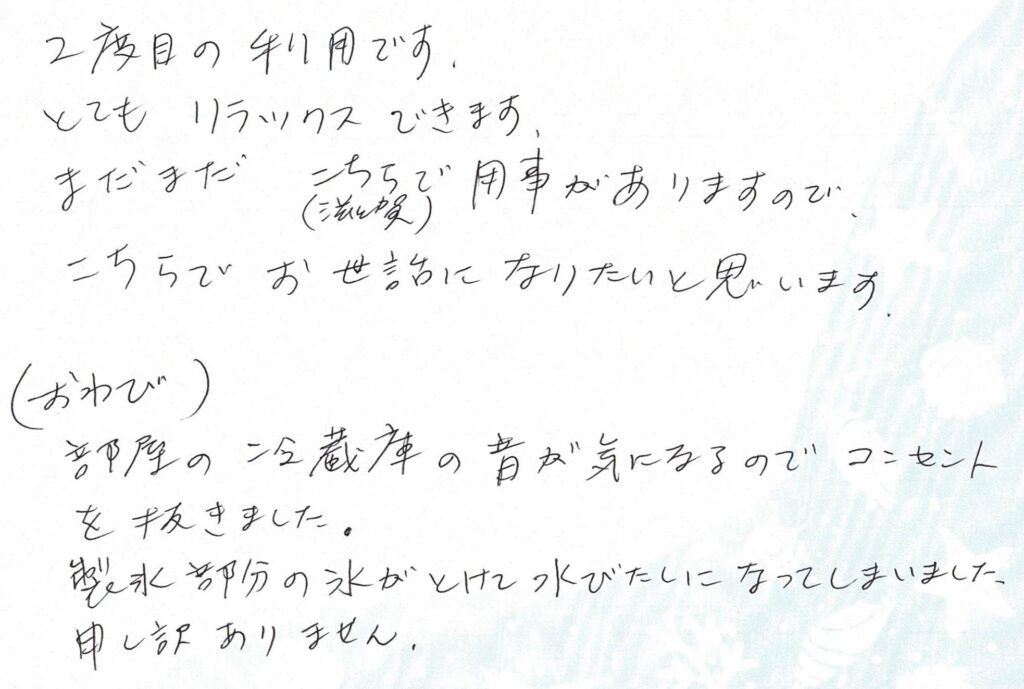 2度目の利用です.
とても リラックス できます.
まだまだ こちらで 用事がありますので、
(滋賀)
こちらで お世話になりたいと思います.
(おわび)
部屋の冷蔵庫の音が気になるのでコンセント
を抜きました。
製氷部分の氷がとけて水びたしになってしまいました、
申し訳ありません.